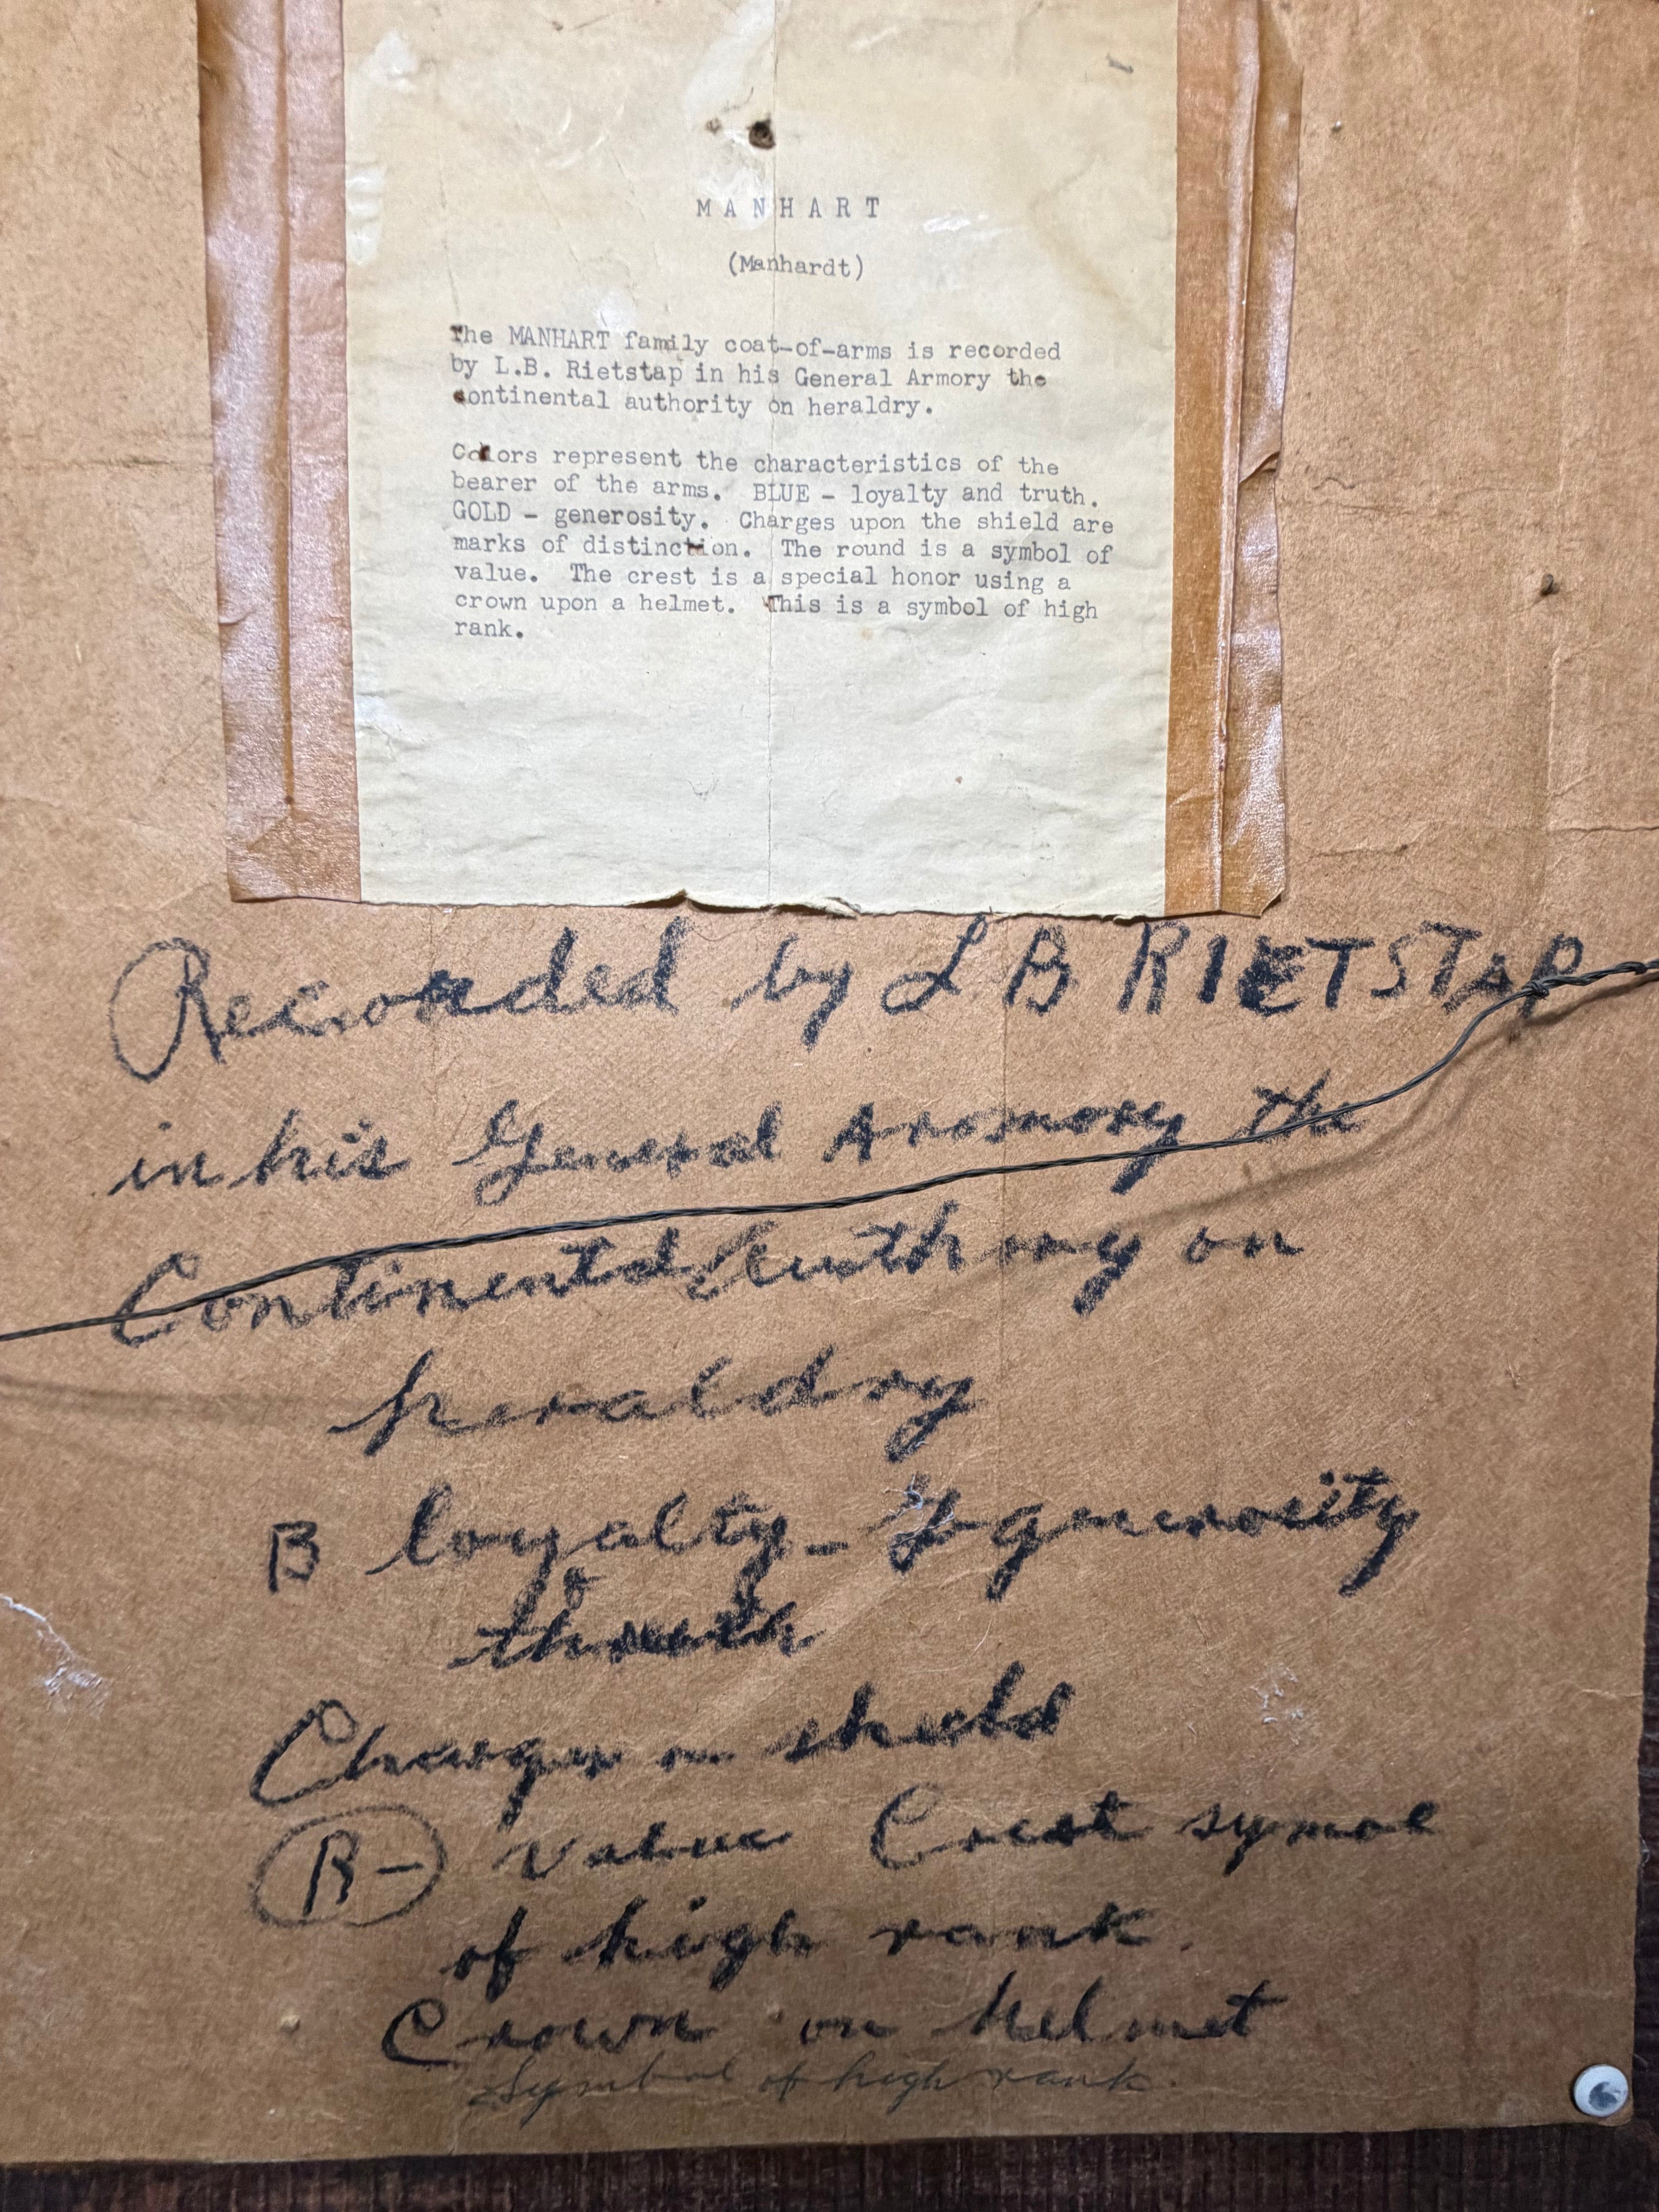 MANHART
(Manhardt)
The MANHART family coat-of-arms is recorded
by L.B. Rietstap in his General Armory the
continental authority on heraldry.
Colors represent the characteristics of the
bearer of the arms. BLUE - loyalty and truth.
GOLD - generosity. Charges upon the shield are
marks of distinction. The round is a symbol of
value. The crest is a special honor using a
crown upon a helmet. This is a symbol of high
rank.
Recorded by L B RIETSTAP
in his General Armory the
Continental Authory on
heraldry
B loyalty - G generosity
&
thruth
Charges on sheld
R - Value Crest symol
of high rank.
Crown on helmet
Symbol of high rank.